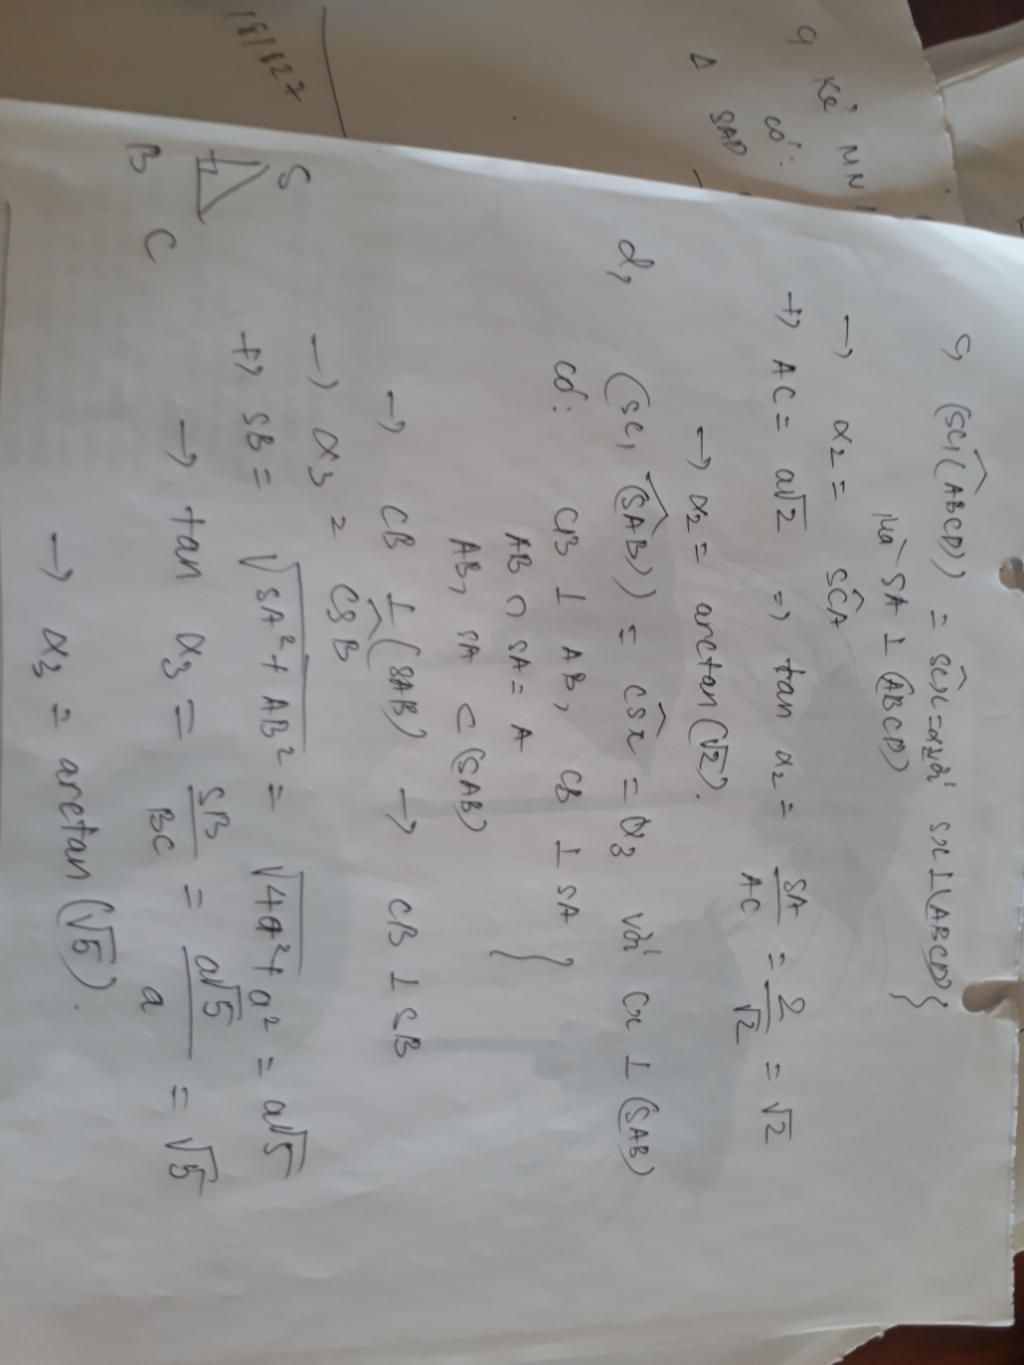 c, (SC, (ABCD)) = SCx = α2 với Sx ⊥ (ABCD)}
mà SA ⊥ (ABCD)
→ α2 = SCA
+, AC = a√2 ⇒ tan α2 = SA/AC = 2/√2 = √2
→ α2 = arctan(√2).
d, (SC, (SAB)) = CSx = α3 với Cx ⊥ (SAB)
có: CB ⊥ AB, CB ⊥ SA }
AB ∩ SA = A
AB, SA ⊂ (SAB)
→ CB ⊥ (SAB) → CB ⊥ SB
→ α3 = CSB
+, SB = √SA² + AB² = √4a² + a² = a√5
→ tan α3 = SB/BC = a√5/a = √5
→ α3 = arctan(√5).
S
B C
181827
c, Kẻ MN
có:
Δ SAD